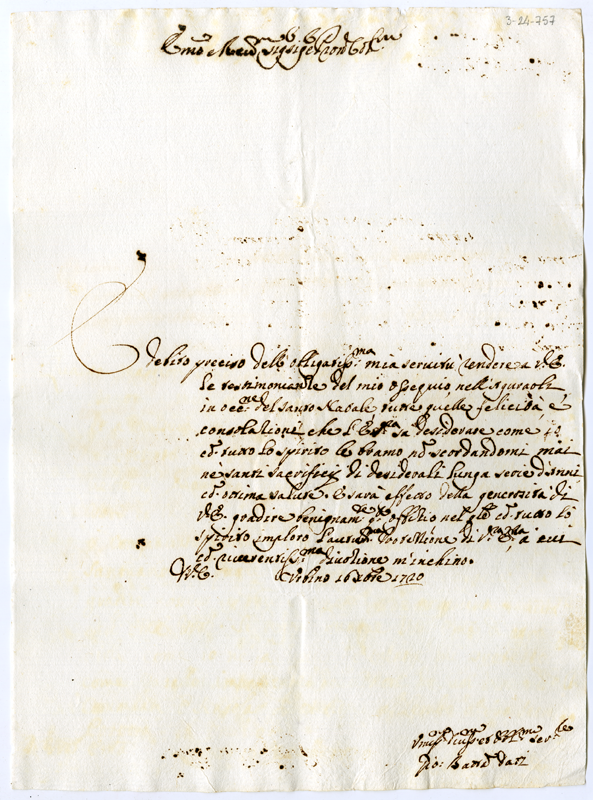 3-24-757
Emo e Revmo Sigr Sigr Pron Colmo
E debito preciso dell' obligatissma mia servitù rendere a V.E.
le testimonianze del mio ossequio, nell'augurarle
in occne del Santo Natale tutte quelle felicità, e
consolationi che l'E. sa desiderare come io
cō tutto lo spirito le bramo nō scordandomi mai
ne santi sacrifizij di desiderali lunga serie d'anni
cō ottima salute. E sarà effetto della generosità di
V.E. gradire benignamte offitio nel cō tutto lo
spirito imploro Protettione di V. E. a cui
cō riverentissma divotione m'inchino.
V.E. Urbino 16 Xbre 1720
Servre
Gio: Battā